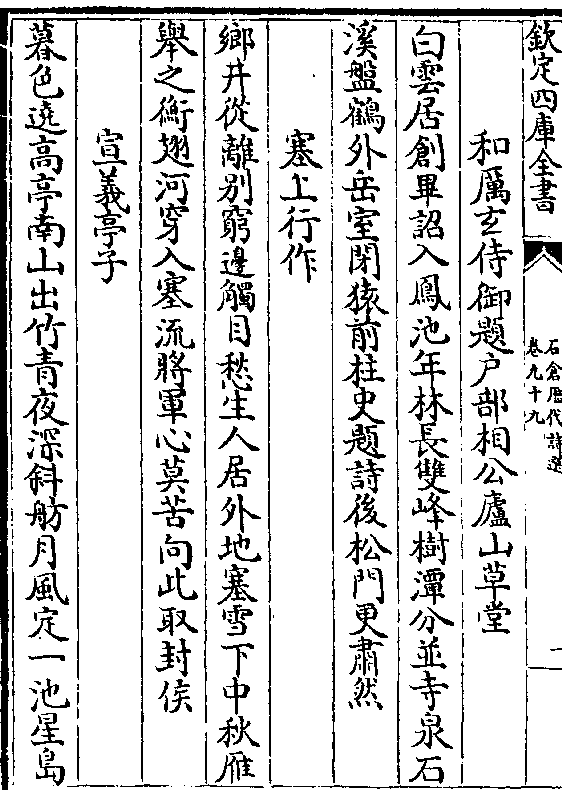 欽定四庫全書
石倉歷代詩選
卷九十九
二
和厲玄侍御題戶部相公廬山草堂
白雲居創畢詔入鳳池年林長雙峰樹潭分並寺泉石
溪盤鶴外岳室閉猿前柱史題詩後松門更肅然
塞上行作
鄉井從離别窮邊觸目愁生人居外地塞雪下中秋雁
舉之衡翅河穿入塞流將軍心莫苦向此取封侯
宣義亭子
暮色遶高亭南山出竹青夜深斜舫月風定一池星島